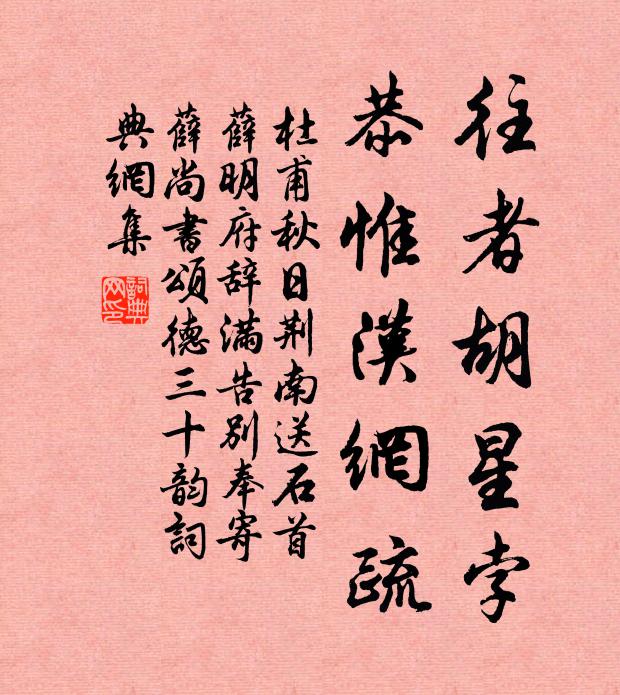 往者胡星孛
恭惟漢網疏
杜甫秋日荆南送石首
薛明府辞满告別奉寄
薛尚書頌德三十韵詞
典網集
詞典網印